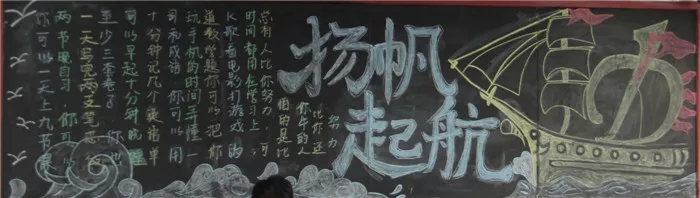 你可以一天上九节课
两节晚自习，你可以
一天写完两支笔芯
至少三套卷子，你
可以早起十分钟晚睡
十分钟记几个英语单
词和成语，你可以用
玩手机的时间弄懂一
道数学题你可以把你
K歌看电影打游戏的
时间都用在学习上，
总有人比你努力，可
怕的是比
你牛的人
比你还
努力
扬帆
起航